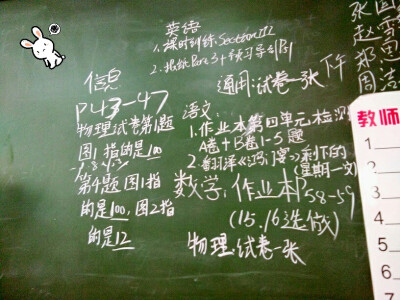 英语
1.课时训练 Section II
2.报纸
通用:试卷一张
下午
信息
P43-47
物理试卷第1题
图1指的是100
第4题图1指
的是100,图2指
的是12
语文:
1.作业本第四单元检测
A卷+B卷1-5题
2.翻译《鸿门宴》剩下的
(星期一交)
数学:作业本P58-59
(15.16选做)
物理:试卷一张
张
赵雪
郑
周志
教师
1
2
3
4
5
6
7